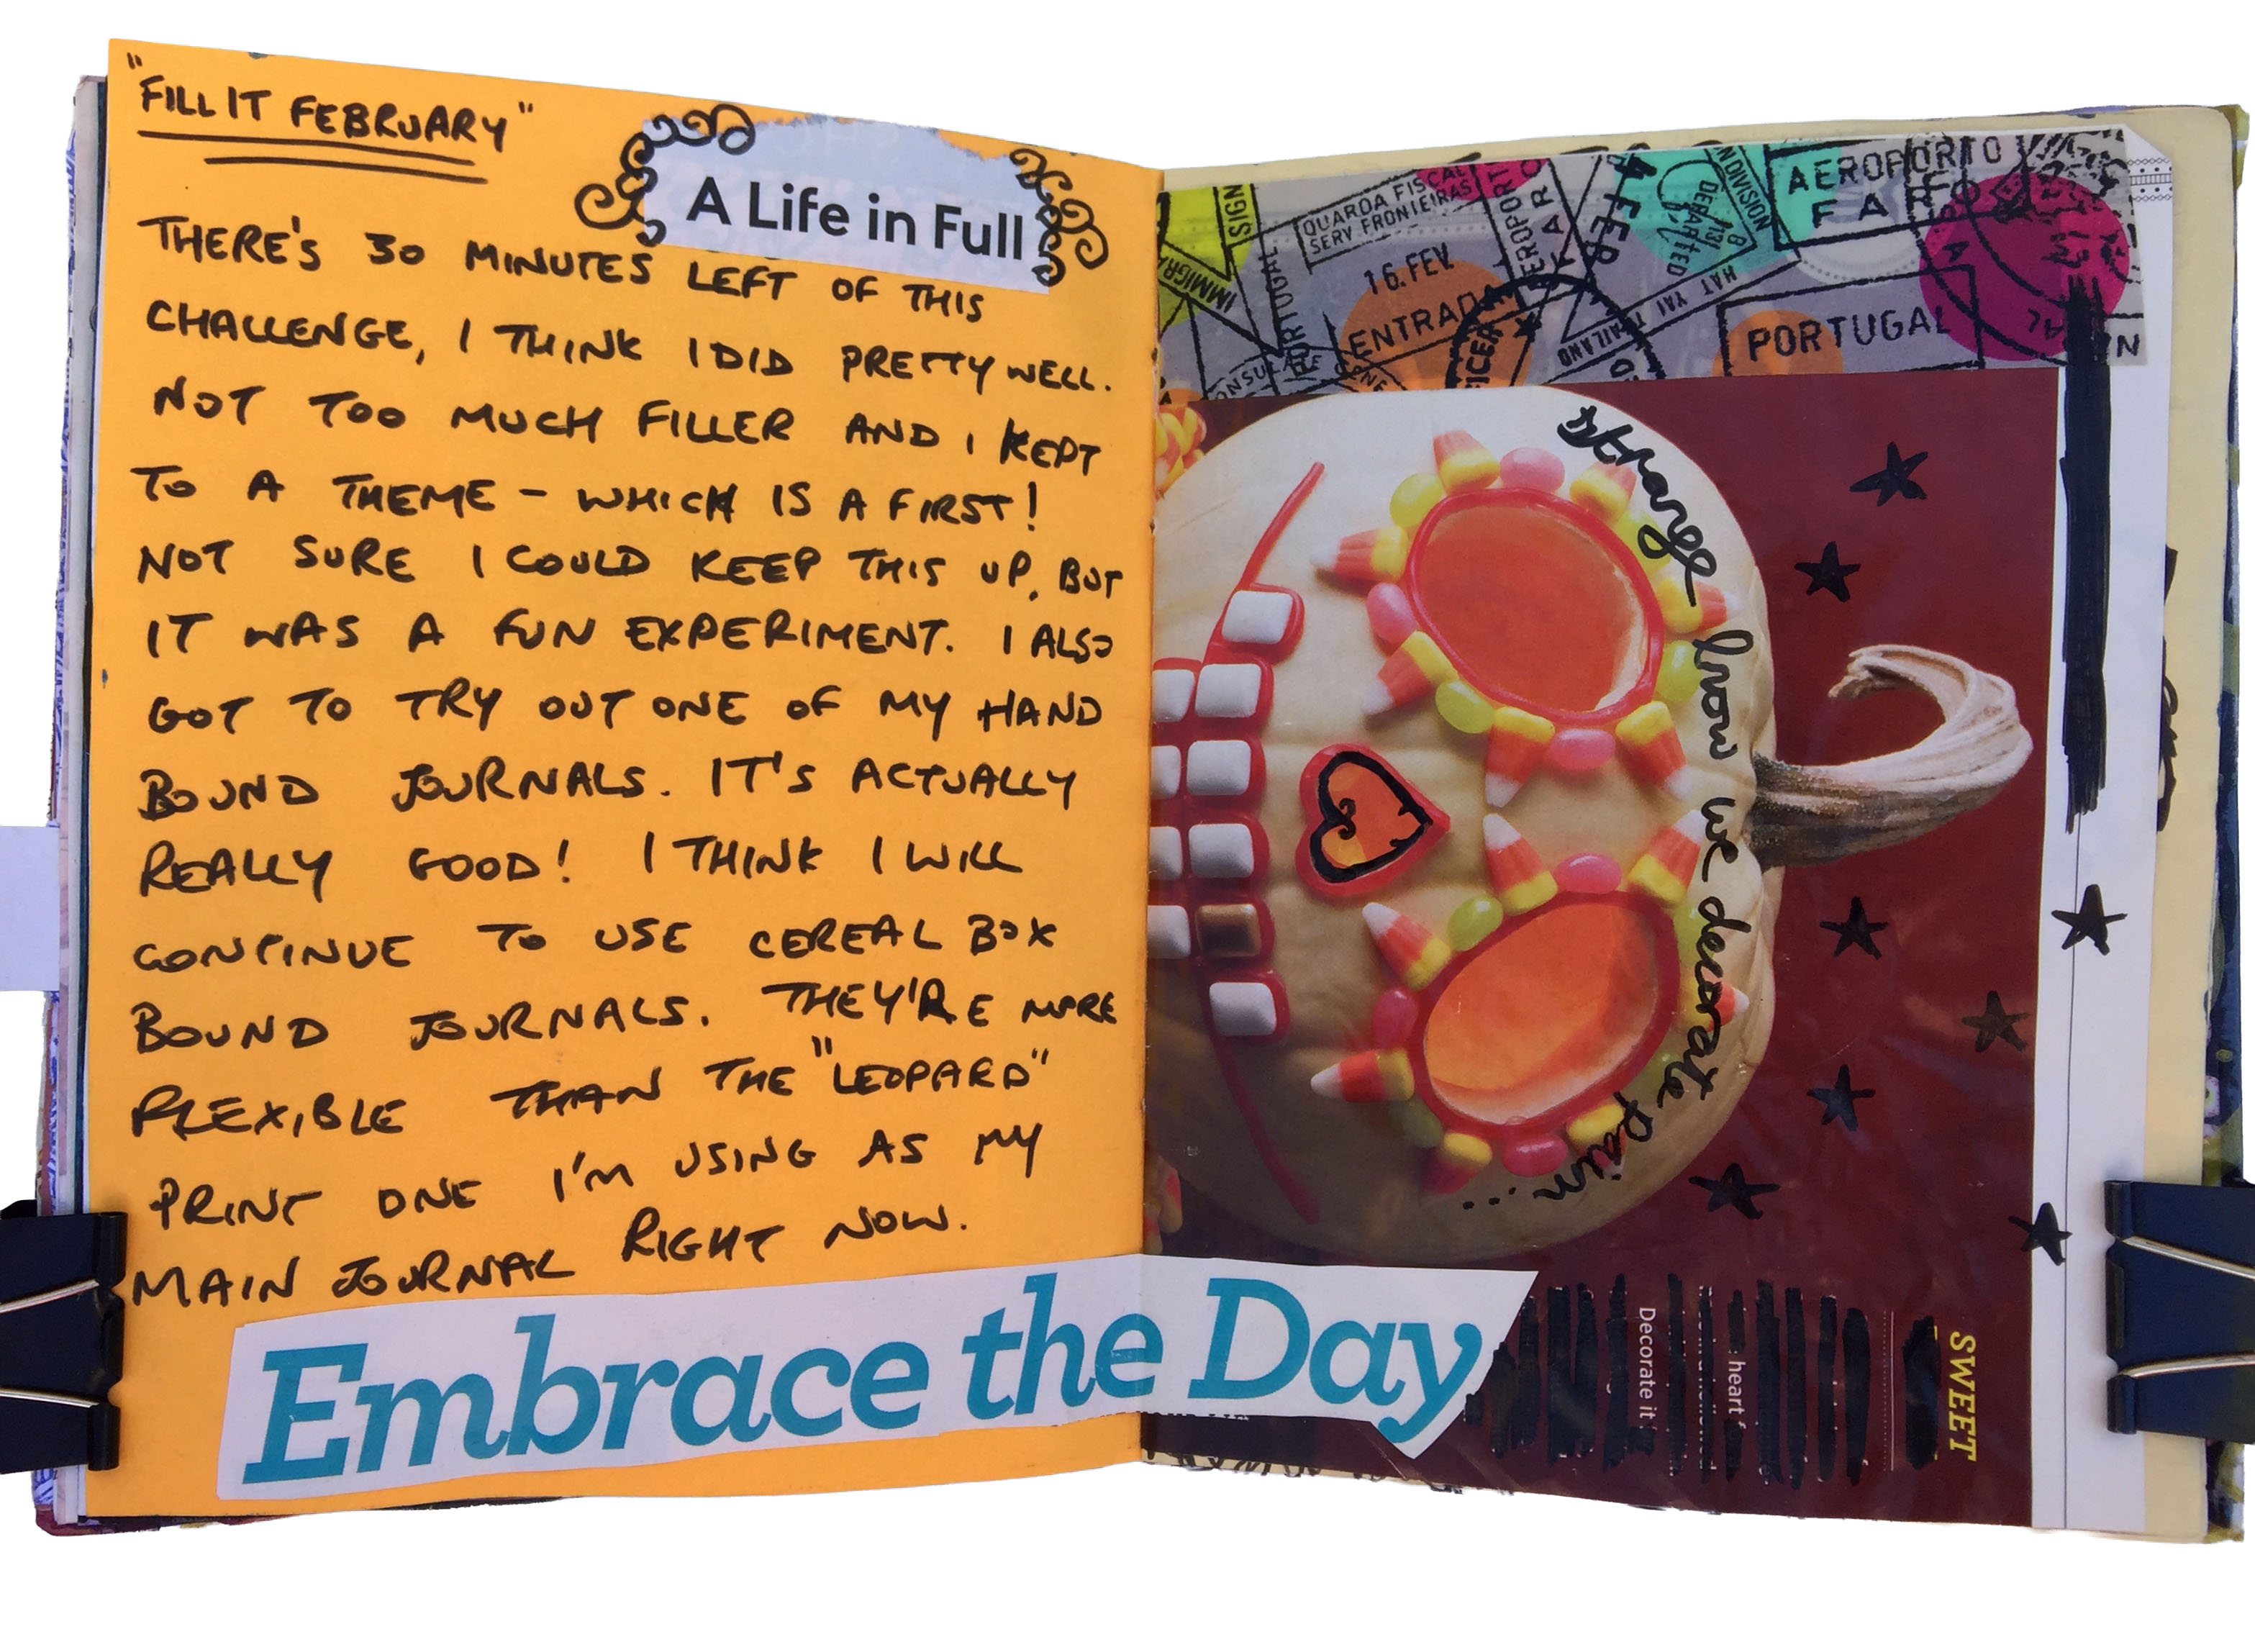 "FILL IT FEBRUARY"
A Life in Full
THERE'S 30 MINUTES LEFT OF THIS
CHALLENGE, I THINK I DID PRETTY WELL.
NOT TOO MUCH FILLER AND I KEPT
TO A THEME - WHICH IS A FIRST!
NOT SURE I COULD KEEP THIS UP, BUT
IT WAS A FUN EXPERIMENT. I ALSO
GOT TO TRY OUT ONE OF MY HAND
BOUND JOURNALS. IT'S ACTUALLY
REALLY GOOD! I THINK I WILL
CONTINUE TO USE CEREAL BOX
BOUND JOURNALS. THEY'RE MORE
FLEXIBLE THAN THE "LEOPARD"
PRINT ONE I'M USING AS MY
MAIN JOURNAL RIGHT NOW.
Embrace the Day
SIGN
IMMIGR
PORTUGAL
QUARDA FISCAL
SERV FRONTEIRAS
16.FEV.
ENTRADA
AEROPORTO
FARO
PORTUGAL
THAILAND
HAT YAI
DEPARTED
strange how we decorate pain...
SWEET
heart
Decorate it